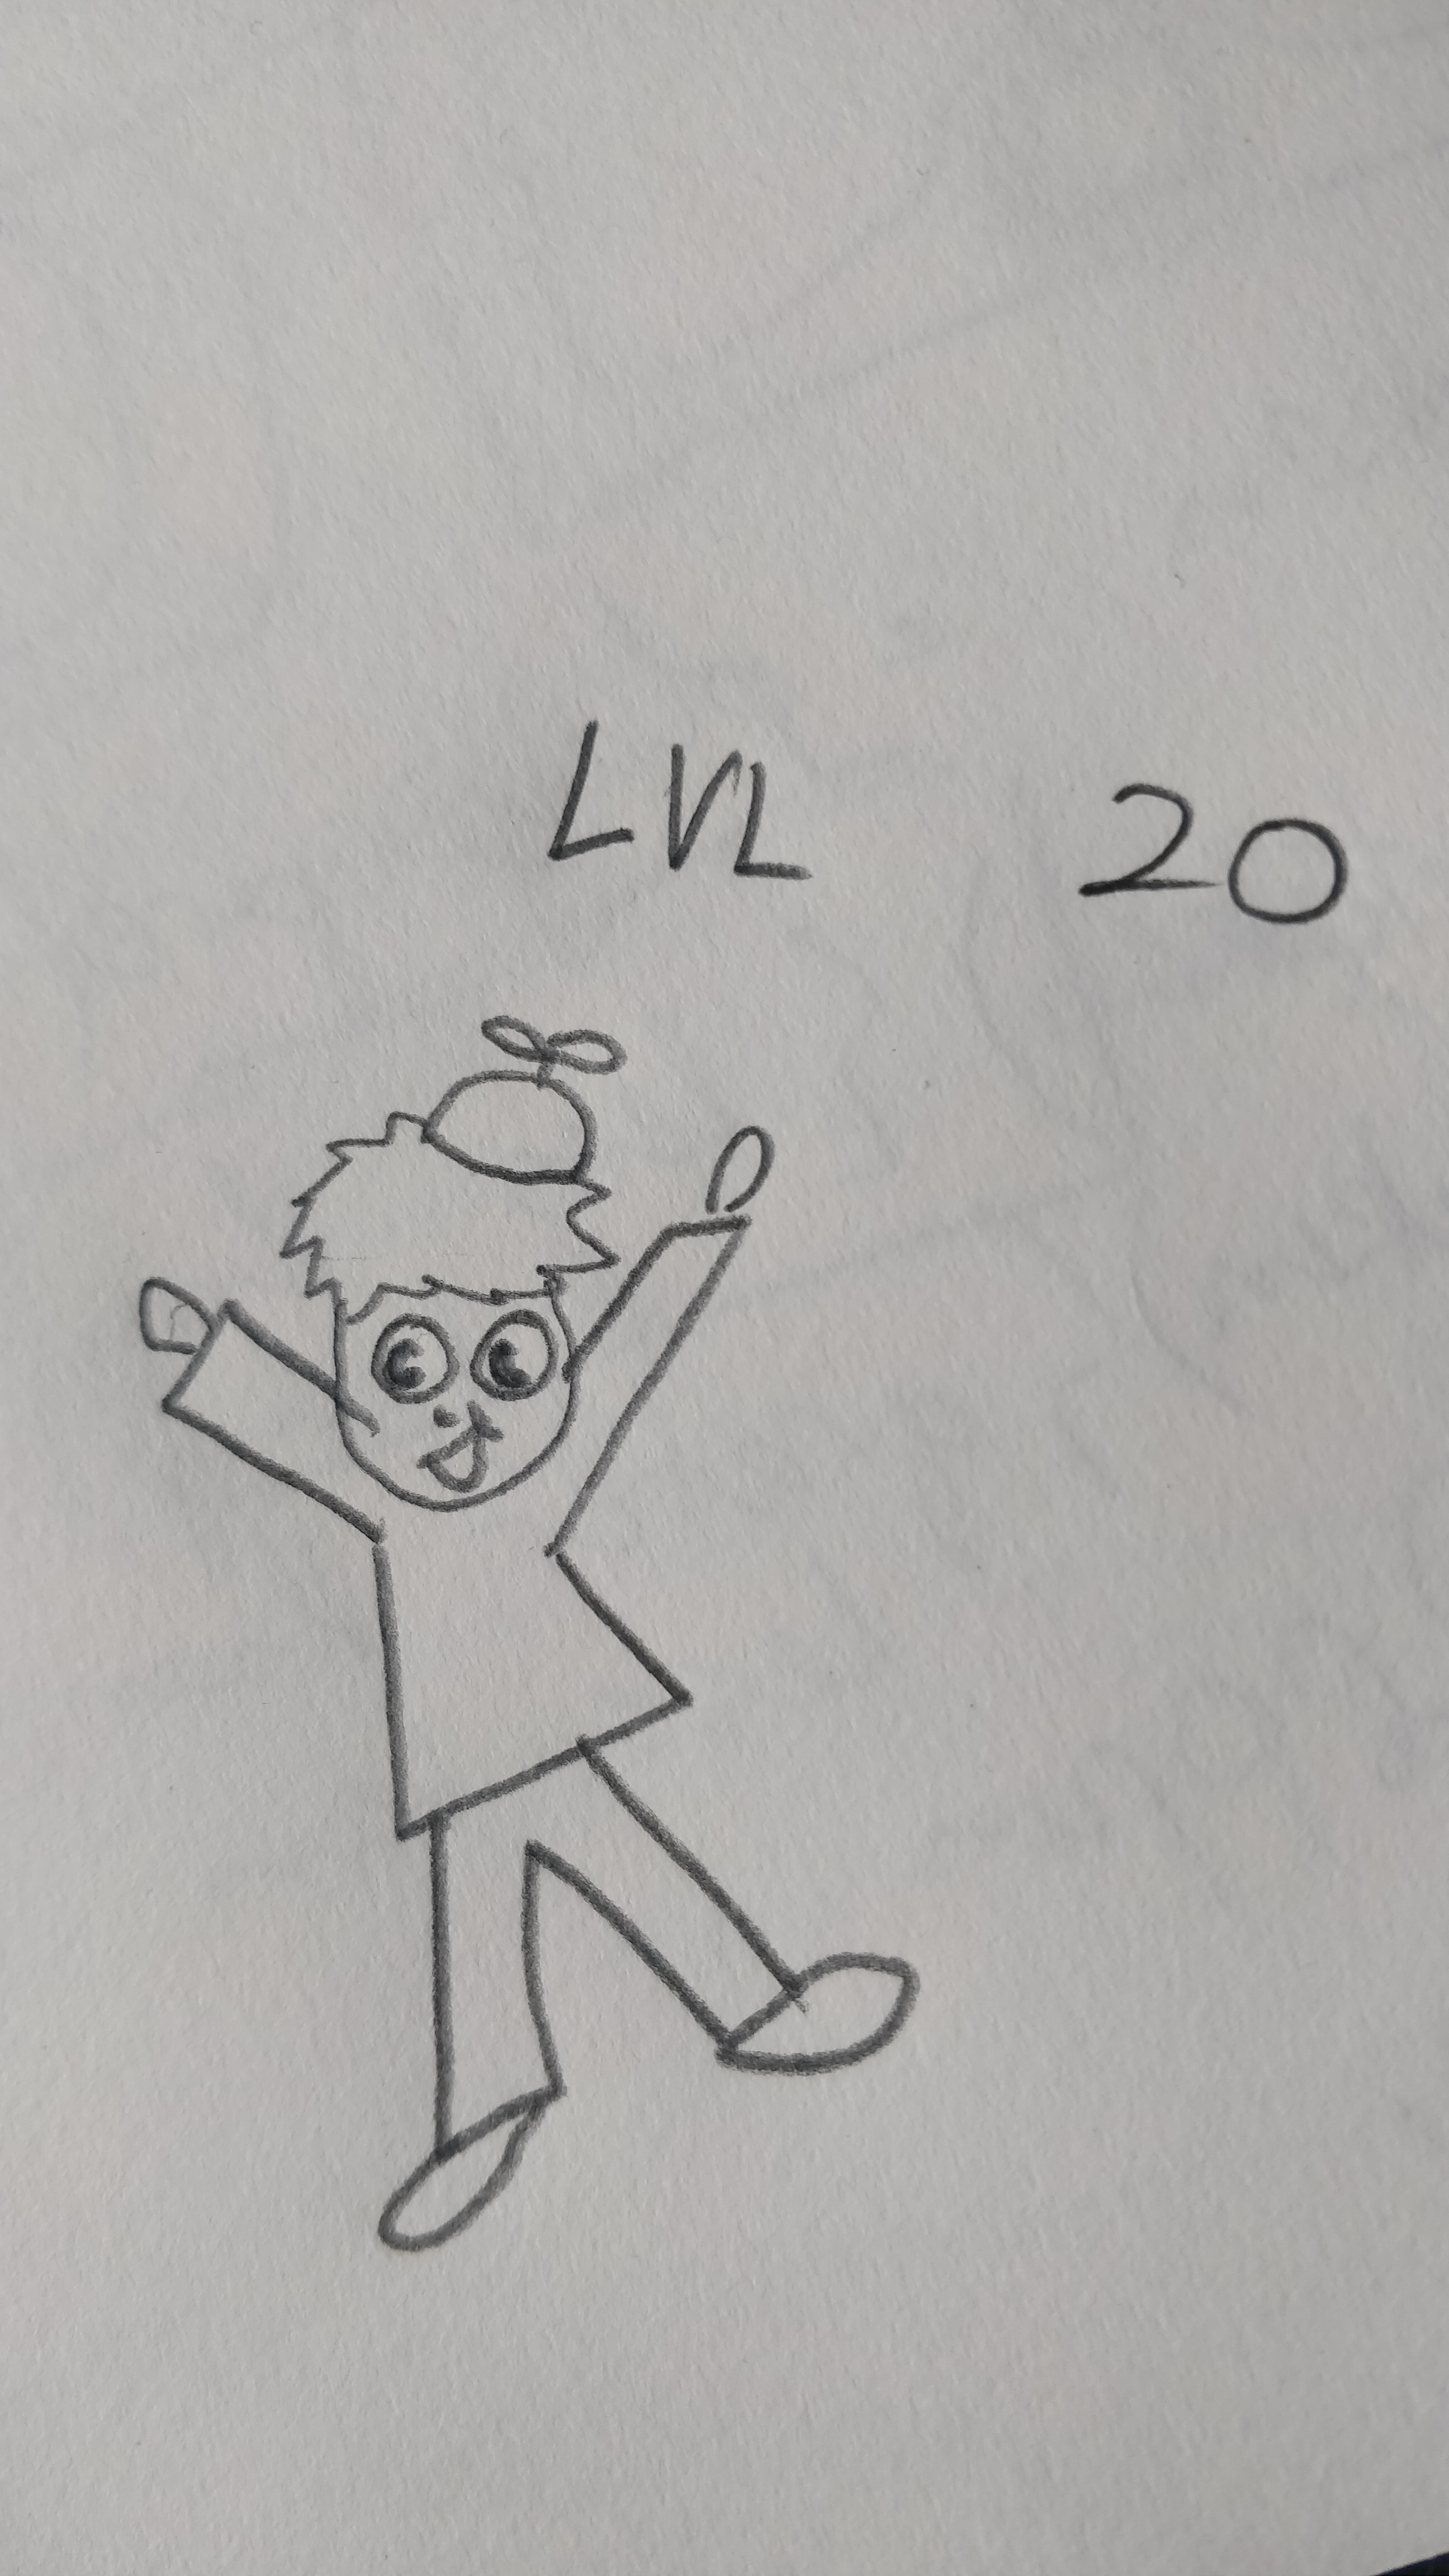 LVL 20